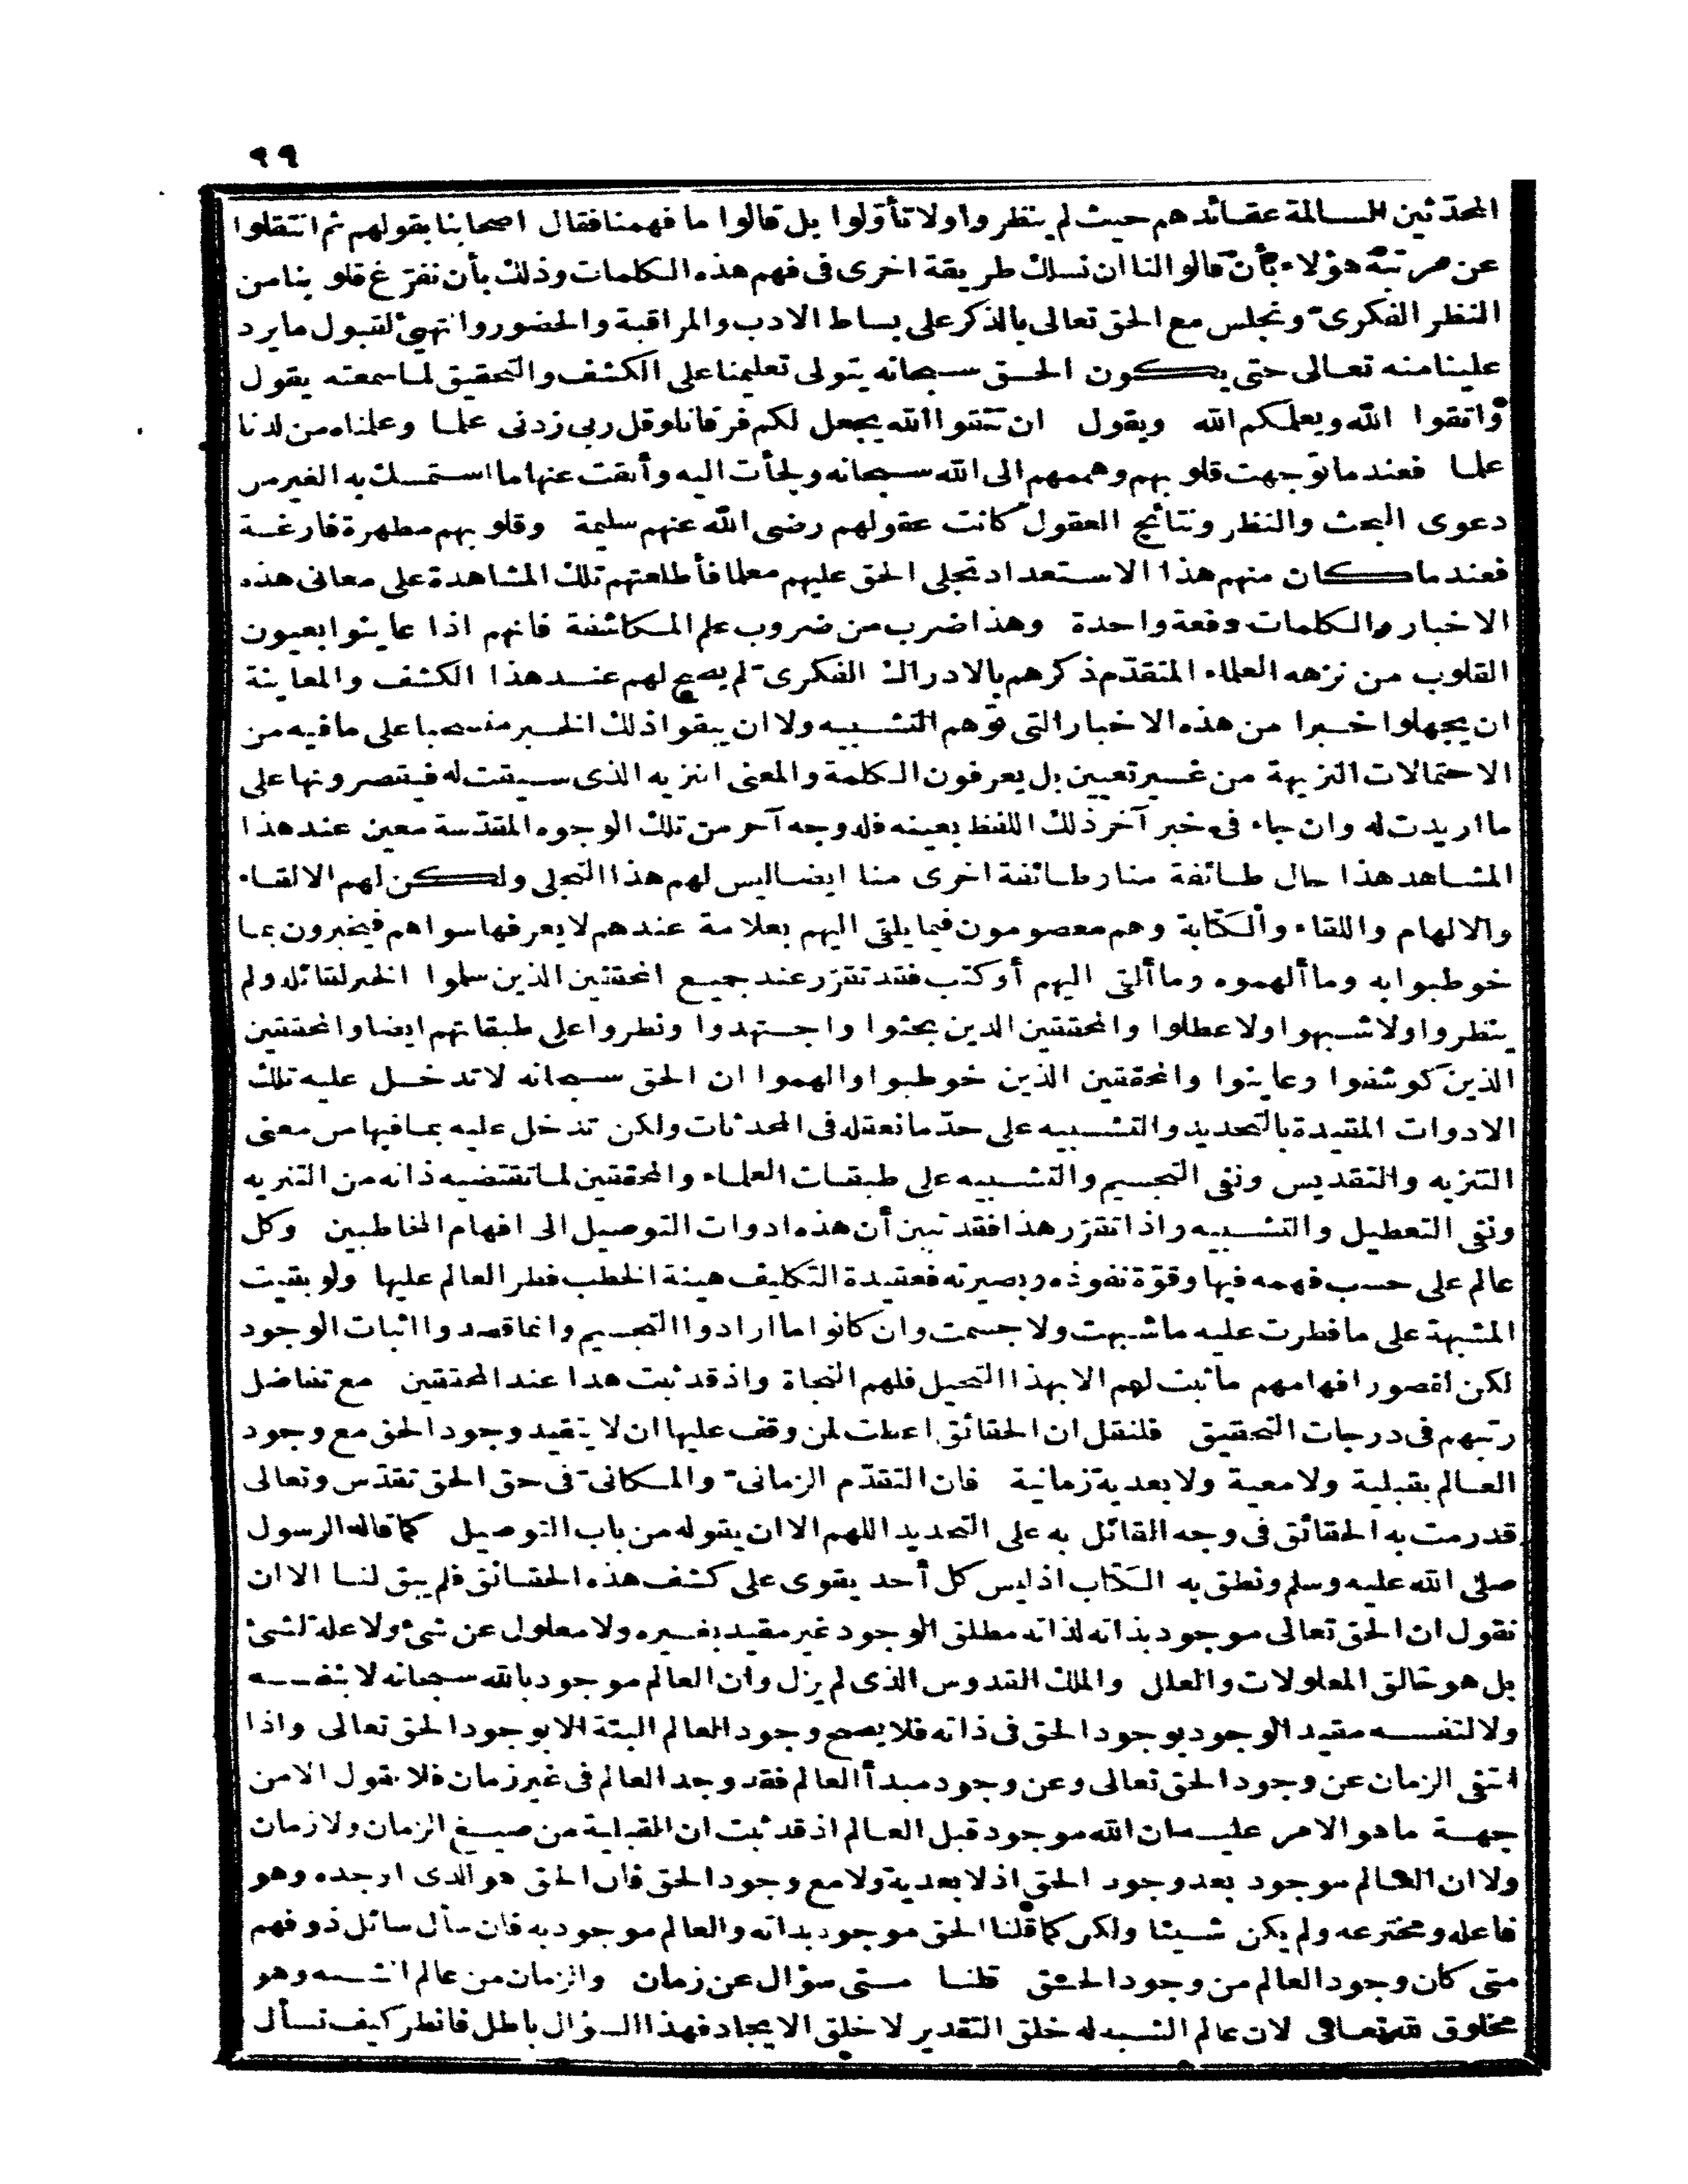 ٩٩
المحدّثين السالمة عقائدهم حيث لم ينظروا ولا تأوّلوا بل قالوا ما فهمنا فقال اصحابنا بقولهم ثم انتقلوا
عن مرتبة هؤلاء بأن قالوا لنا ان نسلك طريقة اخرى فى فهم هذه الكلمات وذلك بأن نفرّغ قلوبنا من
النظر الفكرىّ ونجلس مع الحق تعالى بالذكر على بساط الادب والمراقبة والحضور والتهيئ لقبول ما يرد
علينا منه تعالى حتى يكون الحق سبحانه يتولى تعليمنا على الكشف والتحقيق لما سمعته يقول
واتقوا الله ويعلمكم الله ويقول ان تتقوا الله يجعل لكم فرقانا وقل ربى زدنى علما وعلمناه من لدنا
علما فعند ما توجهت قلوبهم وهممهم الى الله سبحانه ولجأت اليه وألقت عنها ما استمسك به الغير من
دعوى البحث والنظر ونتائج العقول كانت عقولهم رضى الله عنهم سليمة وقلوبهم مطهرة فارغة
فعند ما كان منهم هذا الاستعداد تجلى الحق عليهم معلما فأطلعتهم تلك المشاهدة على معانى هذه
الاخبار والكلمات دفعة واحدة وهذا ضرب من ضروب علم المكاشفة فانهم اذا عاينوا بعيون
القلوب من نزهه العلماء المتقدّم ذكرهم بالادراك الفكرىّ لم يصح لهم عند هذا الكشف والمعاينة
ان يجهلوا خبرا من هذه الاخبار التى توهم التشبيه ولا ان يبقوا ذلك الخبر منسحبا على ما فيه من
الاحتمالات النزيهة من غير تعيين بل يعرفون الكلمة والمعنى النزيه الذى سيقت له فيقصرونها على
ما اريدت له وان جاء فى خبر آخر ذلك اللفظ بعينه فله وجه آخر من تلك الوجوه المقدّسة معين عند هذا
المشاهد هذا حال طائفة منا وطائفة اخرى منا ايضا ليس لهم هذا التجلى ولكن لهم الالقاء
والالهام واللقاء والكتابة وهم معصومون فيما يلقى اليهم بعلامة عندهم لا يعرفها سواهم فيخبرون بما
خوطبوا به وما ألهموه وما ألقى اليهم أو كتب فقد تقرّر عند جميع المحققين الذين سلموا الخبر لقائله ولم
ينظروا ولا شبهوا ولا عطلوا والمحققين الذين بحثوا واجتهدوا ونظروا على طبقاتهم ايضا والمحققين
الذين كوشفوا وعاينوا والمحققين الذين خوطبوا والهموا ان الحق سبحانه لا تدخل عليه تلك
الادوات المقيدة بالتحديد والتشبيه على حدّ ما نعقله فى المحدثات ولكن تدخل عليه بما فيها من معنى
التنزيه والتقديس ونفى التجسيم والتشبيه على طبقات العلماء والمحققين لما تقتضيه ذاته من التنزيه
ونفى التعطيل والتشبيه واذا تقرّر هذا فقد تبين أن هذه ادوات التوصيل الى افهام المخاطبين وكل
عالم على حسب فهمه فيها وقوّة نفوذه وبصيرته فعقيدة التكليف هينة الخطب فطر العالم عليها ولو بقيت
المشبهة على ما فطرت عليه ما شبهت ولا جسمت وان كانوا ما ارادوا التجسيم وانما قصدوا اثبات الوجود
لكن لقصور افهامهم ما ثبت لهم الا بهذا التخيل فلهم النجاة واذ قد ثبت هذا عند المحققين مع تفاضل
رتبهم فى درجات التحقيق فلنقل ان الحقائق اعطت لمن وقف عليها ان لا يتقيد وجود الحق مع وجود
العالم بقبلية ولا معية ولا بعدية زمانية فان التقدّم الزمانىّ والمكانىّ فى حق الحق تقدّس وتعالى
قد رمت به الحقائق فى وجه القائل به على التحديد اللهم الا ان يقوله من باب التوصيل كما قاله الرسول
صلى الله عليه وسلم ونطق به الكتاب اذ ليس كل أحد يقوى على كشف هذه الحقائق فلم يبق لنا الا ان
نقول ان الحق تعالى موجود بذاته لذاته مطلق الوجود غير مقيد بغيره ولا معلول عن شئ ولا علة لشئ
بل هو خالق المعلولات والعلل والملك القدوس الذى لم يزل وان العالم موجود بالله سبحانه لا بنفسه
ولا لنفسه مقيد الوجود بوجود الحق فى ذاته فلا يصح وجود العالم البتة الا بوجود الحق تعالى واذا
انتفى الزمان عن وجود الحق تعالى وعن وجود مبدأ العالم فقد وجد العالم فى غير زمان فلا نقول الا من
جهة ما هو الامر عليه ان الله موجود قبل العالم اذ قد ثبت ان القبلية من صيغ الزمان ولا زمان
ولا ان العالم موجود بعد وجود الحق اذ لا بعدية ولا مع وجود الحق فان الحق هو الذى اوجده وهو
فاعله ومخترعه ولم يكن شيئا ولكن كما قلنا الحق موجود بذاته والعالم موجود به فان سأل سائل ذو فهم
متى كان وجود العالم من وجود الحق قلنا متى سؤال عن زمان والزمان من عالم النسبه وهو
مخلوق لله تعالى لان عالم النسبه له خلق التقدير لا خلق الايجاد فهذا السؤال باطل فانظر كيف تسأل